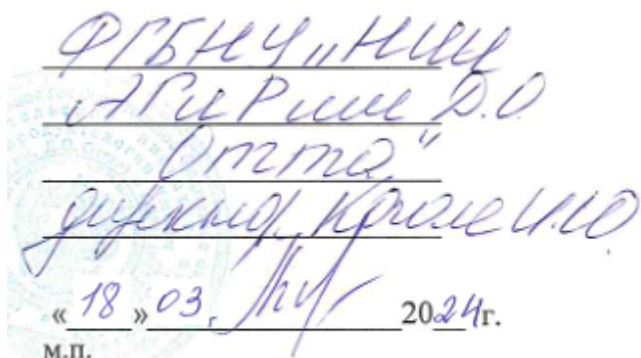 ФГБНУ „НИИ
АГиР им Д.О
Отта"
директор, Коган И.Ю.
« 18 » 03, 2024г.
м.п.